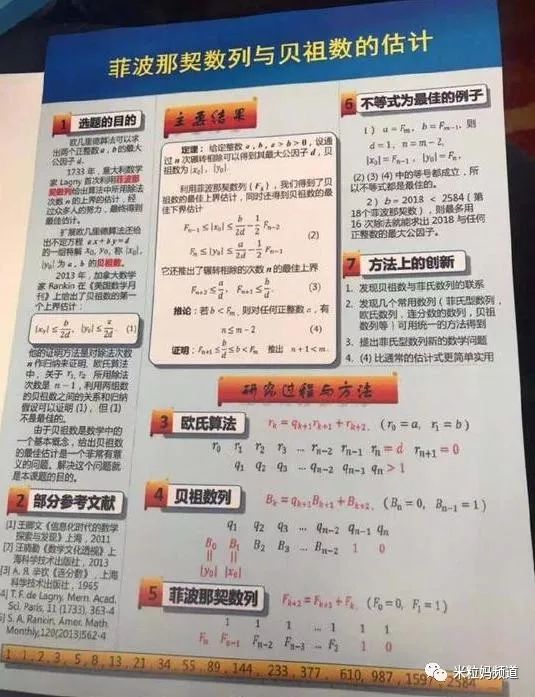 菲波那契数列与贝祖数的估计
1 选题的目的
欧几里德算法可以求
出两个正整数 a, b 的最大
公因子 d.
1733 年，意大利数学
家 Lagny 首次利用菲波那
契数列给出算法中所用除法
次数 n 的上界的估计，经
过众人的努力，最终得到
最佳估计。
扩展欧几里德算法还给
出不定方程 ax+by=d
的一组特解 x₀, y₀, 称 |x₀|,
|y₀| 为 a, b 的贝祖数。
2013 年，加拿大数学
家 Rankin 在《美国数学月
刊》上给出了贝祖数的第一
个上界估计：
|x₀| ≤ b/2d, |y₀| ≤ a/2d. (1)
他的证明方法是对除法次数
n 作归纳来证明, 欧氏算法
中，关于 r₁, r₂ 所用除法
次数是 n − 1，利用两组数
的贝祖数之间的关系和归纳
假设可以证明 (1)，但 (1)
不是最佳的。
由于贝祖数是数学中的
一个基本概念，给出贝祖数
的最佳估计是一个非常有意
义的问题。解决这个问题就
是本课题的目的。
2 部分参考文献
《信息化时代的数学
探索与发现》上海, 2011
《数学文化透视》上
海科学技术出版社, 2013
[3] A. Я. 辛钦《连分数》, 上海
科学技术出版社, 1965
4] T. F. de Lagny, Mem. Acad.
Sci. Paris, 11 (1733), 363-4
5] S. A. Rankin, Amer. Math.
Monthly,120(2013)562-4
主要结果
定理：给定整数 a, b, a > b > 0, 设通
过 n 次辗转相除可以得到其最大公因子 d, 贝
祖数为 |x₀|, |y₀|.
利用菲波那契数列 {Fₖ}, 我们得到了贝
祖数的最佳上界估计，同时还得到贝祖数的最
佳下界估计
Fₙ₋₁ ≤ |x₀| ≤ b/2d − 1/2 Fₙ₋₂
(2)
Fₙ ≤ |y₀| ≤ a/2d − 1/2 Fₙ₋₁
它还推出了辗转相除的次数 n 的最佳上界
Fₙ₊₂ ≤ a/d, Fₙ₊₁ ≤ b/d. (3)
推论：若 b < Fₘ, 则对任何正整数 a, 有
n ≤ m − 2 (4)
证明：Fₙ₊₁ ≤ b/d ≤ b < Fₘ 推出 n + 1 < m.
6 不等式为最佳的例子
1) a = Fₘ, b = Fₘ₋₁, 则
d = 1, n = m − 2,
|x₀| = Fₙ₋₁, |y₀| = Fₙ.
(2) (3) (4) 中的等号都成立，所
以不等式都是最佳的。
2) b = 2018 < 2584 (第
18个菲波那契数)，则最多用
16 次除法就能求出 2018 与任何
正整数的最大公因子。
7 方法上的创新
1. 发现贝祖数与菲氏数列的联系
2. 发现几个常用数列（菲氏型数列，
欧氏数列，连分数的数列，贝祖
数列等）可用统一的方法得到
3. 提出菲氏型数列新的数学问题
4. (4) 比通常的估计式更简单实用
研究过程与方法
3 欧氏算法 rₖ = qₖ₊₁rₖ₊₁ + rₖ₊₂, (r₀ = a, r₁ = b)
r₀ r₁ r₂ r₃ ... rₙ₋₂ rₙ₋₁ rₙ = d rₙ₊₁ = 0
q₁ q₂ q₃ ... qₙ₋₂ qₙ₋₁ qₙ > 1
4 贝祖数列 Bₖ = qₖ₊₁Bₖ₊₁ + Bₖ₊₂, (Bₙ = 0, Bₙ₋₁ = 1)
q₁ q₂ q₃ ... qₙ₋₂ qₙ₋₁ qₙ
B₀ B₁ B₂ B₃ ... Bₙ₋₂ 1 0
|| ||
|y₀| |x₀|
5 菲波那契数列 Fₖ₊₂ = Fₖ₊₁ + Fₖ, (F₀ = 0, F₁ = 1)
1 1 1 ... 1 1 1
Fₙ Fₙ₋₁ Fₙ₋₂ Fₙ₋₃ ... F₂ 1 0
1, 1, 2, 3, 5, 8, 13, 21, 34, 55, 89, 144, 233, 377, 610, 987, 1597, 2584
米粒妈频道